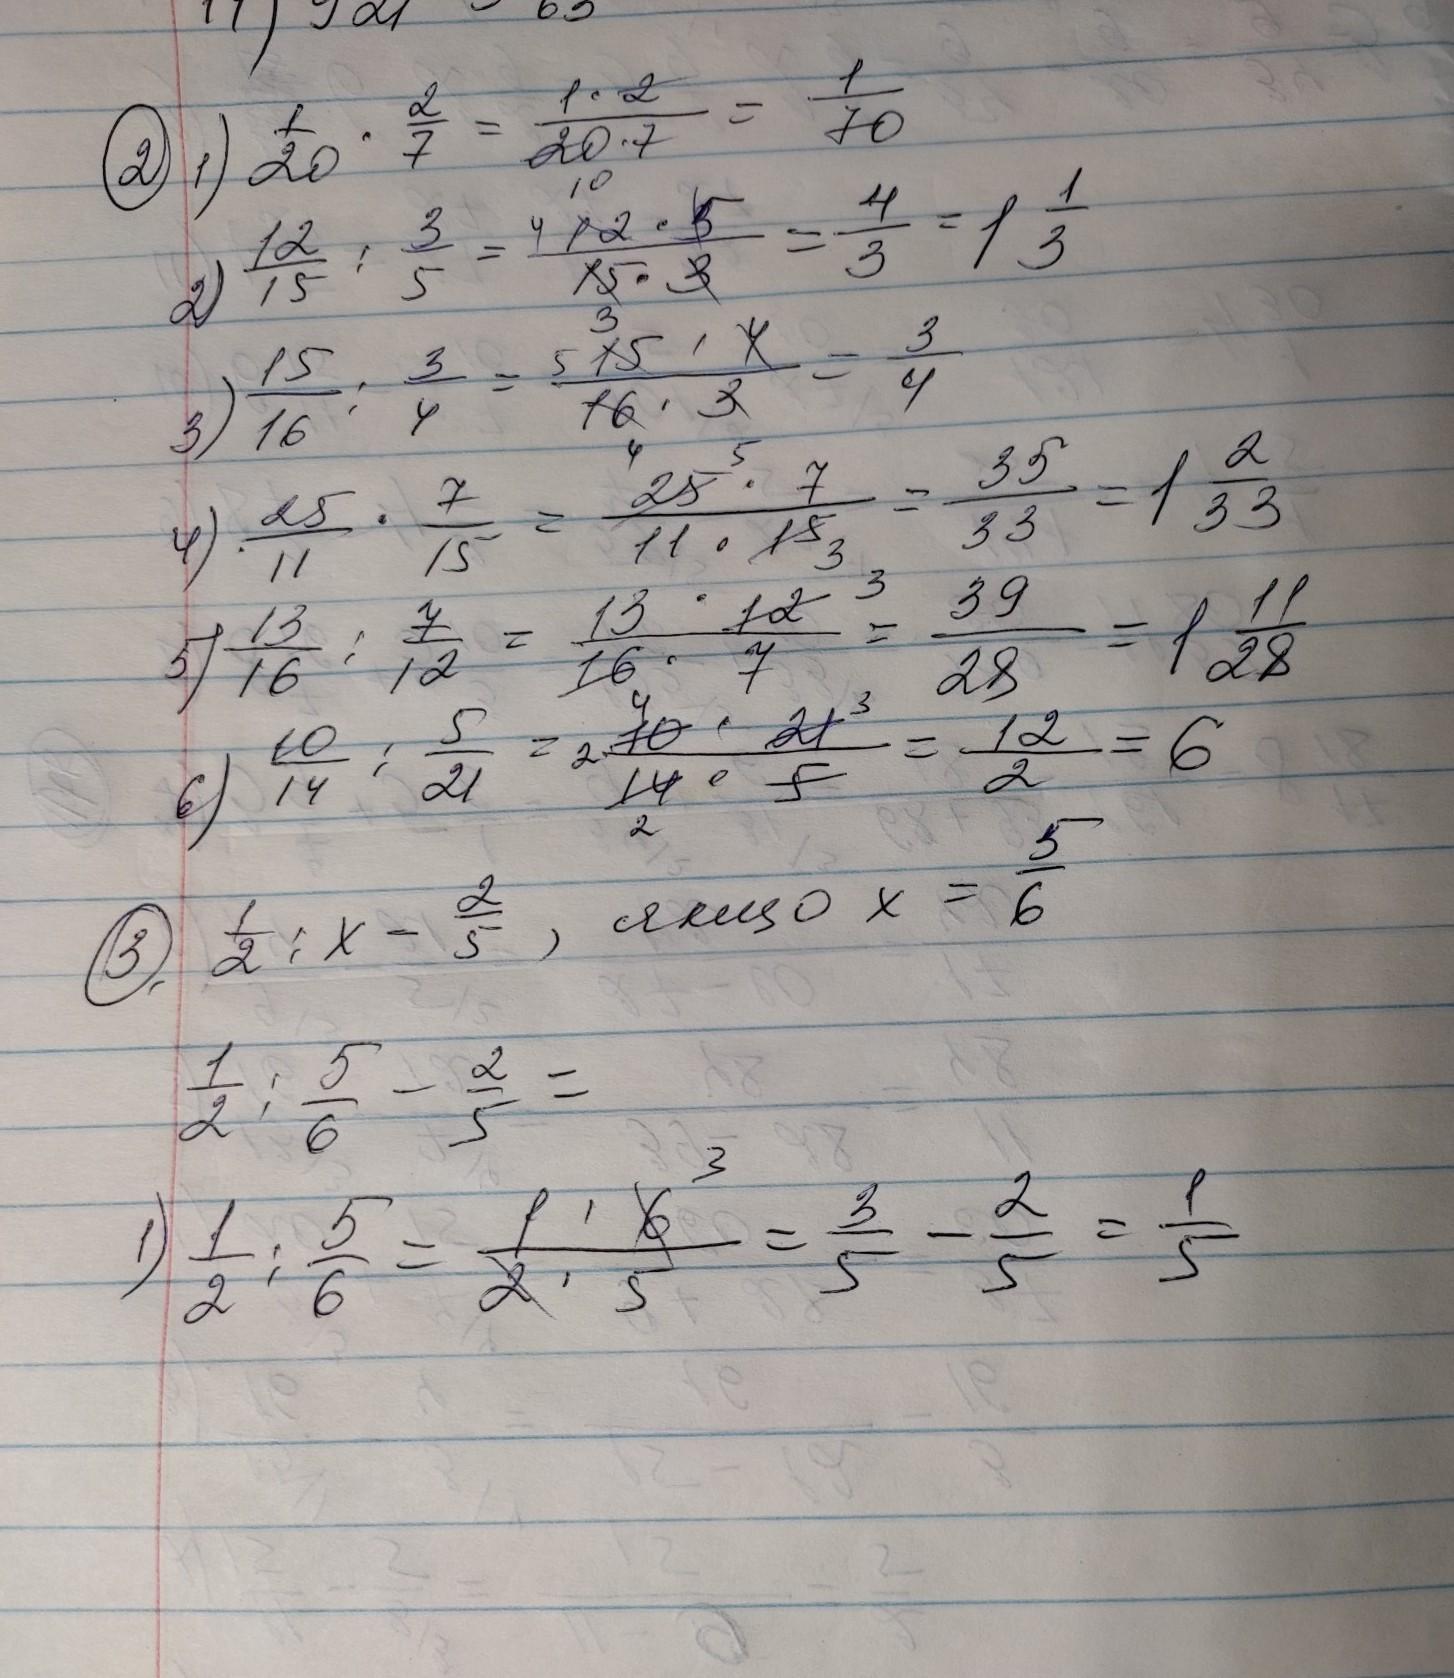 ② 1) 1/20 · 2/7 = 1·2/20·7 10 = 1/70
2) 12/15 : 3/5 = 4 12·5/15·3 3 = 4/3 = 1 1/3
3) 15/16 : 3/4 = 5 15·4/16·3 4 = 3/4
4) 25/11 · 7/15 = 25 5 · 7/11·15 3 = 35/33 = 1 2/33
5) 13/16 : 7/12 = 13·12 3/16·7 4 = 39/28 = 1 11/28
6) 10/14 : 5/21 = 2 10·21 3/14·5 2 = 12/2 = 6
③. 1/2 : x - 2/5, якщо x = 5/6
1/2 : 5/6 - 2/5 =
1) 1/2 : 5/6 = 1·6 3/2·5 = 3/5 - 2/5 = 1/5